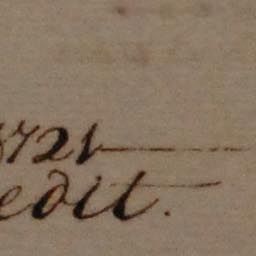 8721
edit.